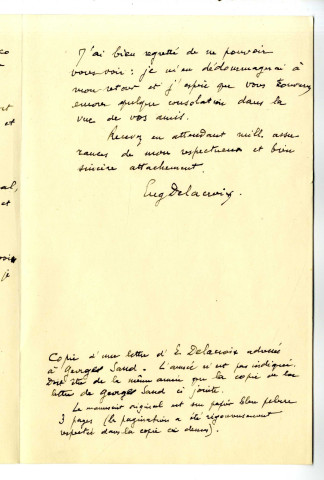 J'ai bien regretté de ne pouvoir
vous voir : je m'en dédommagerai à
mon retour et j'espère que vous trouverez
encore quelque consolation dans la
vue de vos amis.
Recevez en attendant mille assu-
rances de mon respectueux et bien
sincère attachement.
Eug Delacroix.
Copie d'une lettre d'E. Delacroix adressée
à Georges Sand. L'année n'est pas indiquée.
Doit être de la même année que la copie de la
lettre de Georges Sand ci jointe.
Le manuscrit original est sur papier bleu pelure
3 pages (la pagination a été rigoureusement
respectée dans la copie ci dessus).
et
al,
et
je